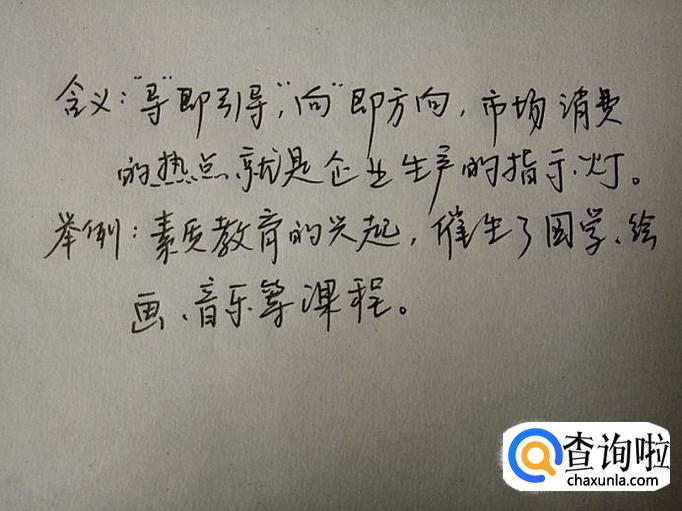 含义："导"即引导，"向"即方向，市场消费
的热点就是企业生产的指示灯。
举例：素质教育的兴起，催生了国学、绘
画、音乐等课程。
查询啦
chaxunla.com